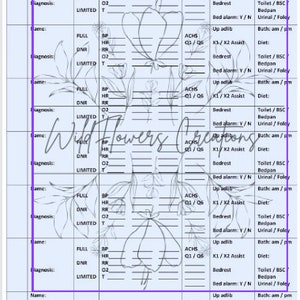 Diagnosis: O2 Bedrest Toilet / BSC /
LIMITED T Bedpan
Bed alarm: Y / N Urinal / Foley
Name: Up adlib Bath: am / pm
FULL BP ACHS
HR Q1 / Q6 X1 / X2 Assist Diet:
DNR RR
Diagnosis: O2 Bedrest Toilet / BSC /
LIMITED T Bedpan
Bed alarm: Y / N Urinal / Foley
Name: Up adlib Bath: am / pm
FULL BP ACHS
HR Q1 / Q6 X1 / X2 Assist Diet:
DNR RR
Diagnosis: O2 Bedrest Toilet / BSC /
LIMITED T Bedpan
Bed alarm: Y / N Urinal / Foley
Wild Flowers Creations
Name: Up adlib Bath: am / pm
FULL BP ACHS
HR Q1 / Q6 X1 / X2 Assist Diet:
DNR RR
Diagnosis: O2 Bedrest Toilet / BSC /
LIMITED T Bedpan
Bed alarm: Y / N Urinal / Foley
Name: Up adlib Bath: am / pm
FULL BP ACHS
HR Q1 / Q6 X1 / X2 Assist Diet:
DNR RR
Diagnosis: O2 Bedrest Toilet / BSC /
LIMITED T Bedpan
Bed alarm: Y / N Urinal / Foley
Name: Up adlib Bath: am / pm
FULL BP ACHS
HR Q1 / Q6 X1 / X2 Assist Diet:
DNR RR
Diagnosis: O2 Bedrest Toilet / BSC /
LIMITED T Bedpan
Bed alarm: Y / N Urinal / Foley
Name: Up adlib Bath: am / pm